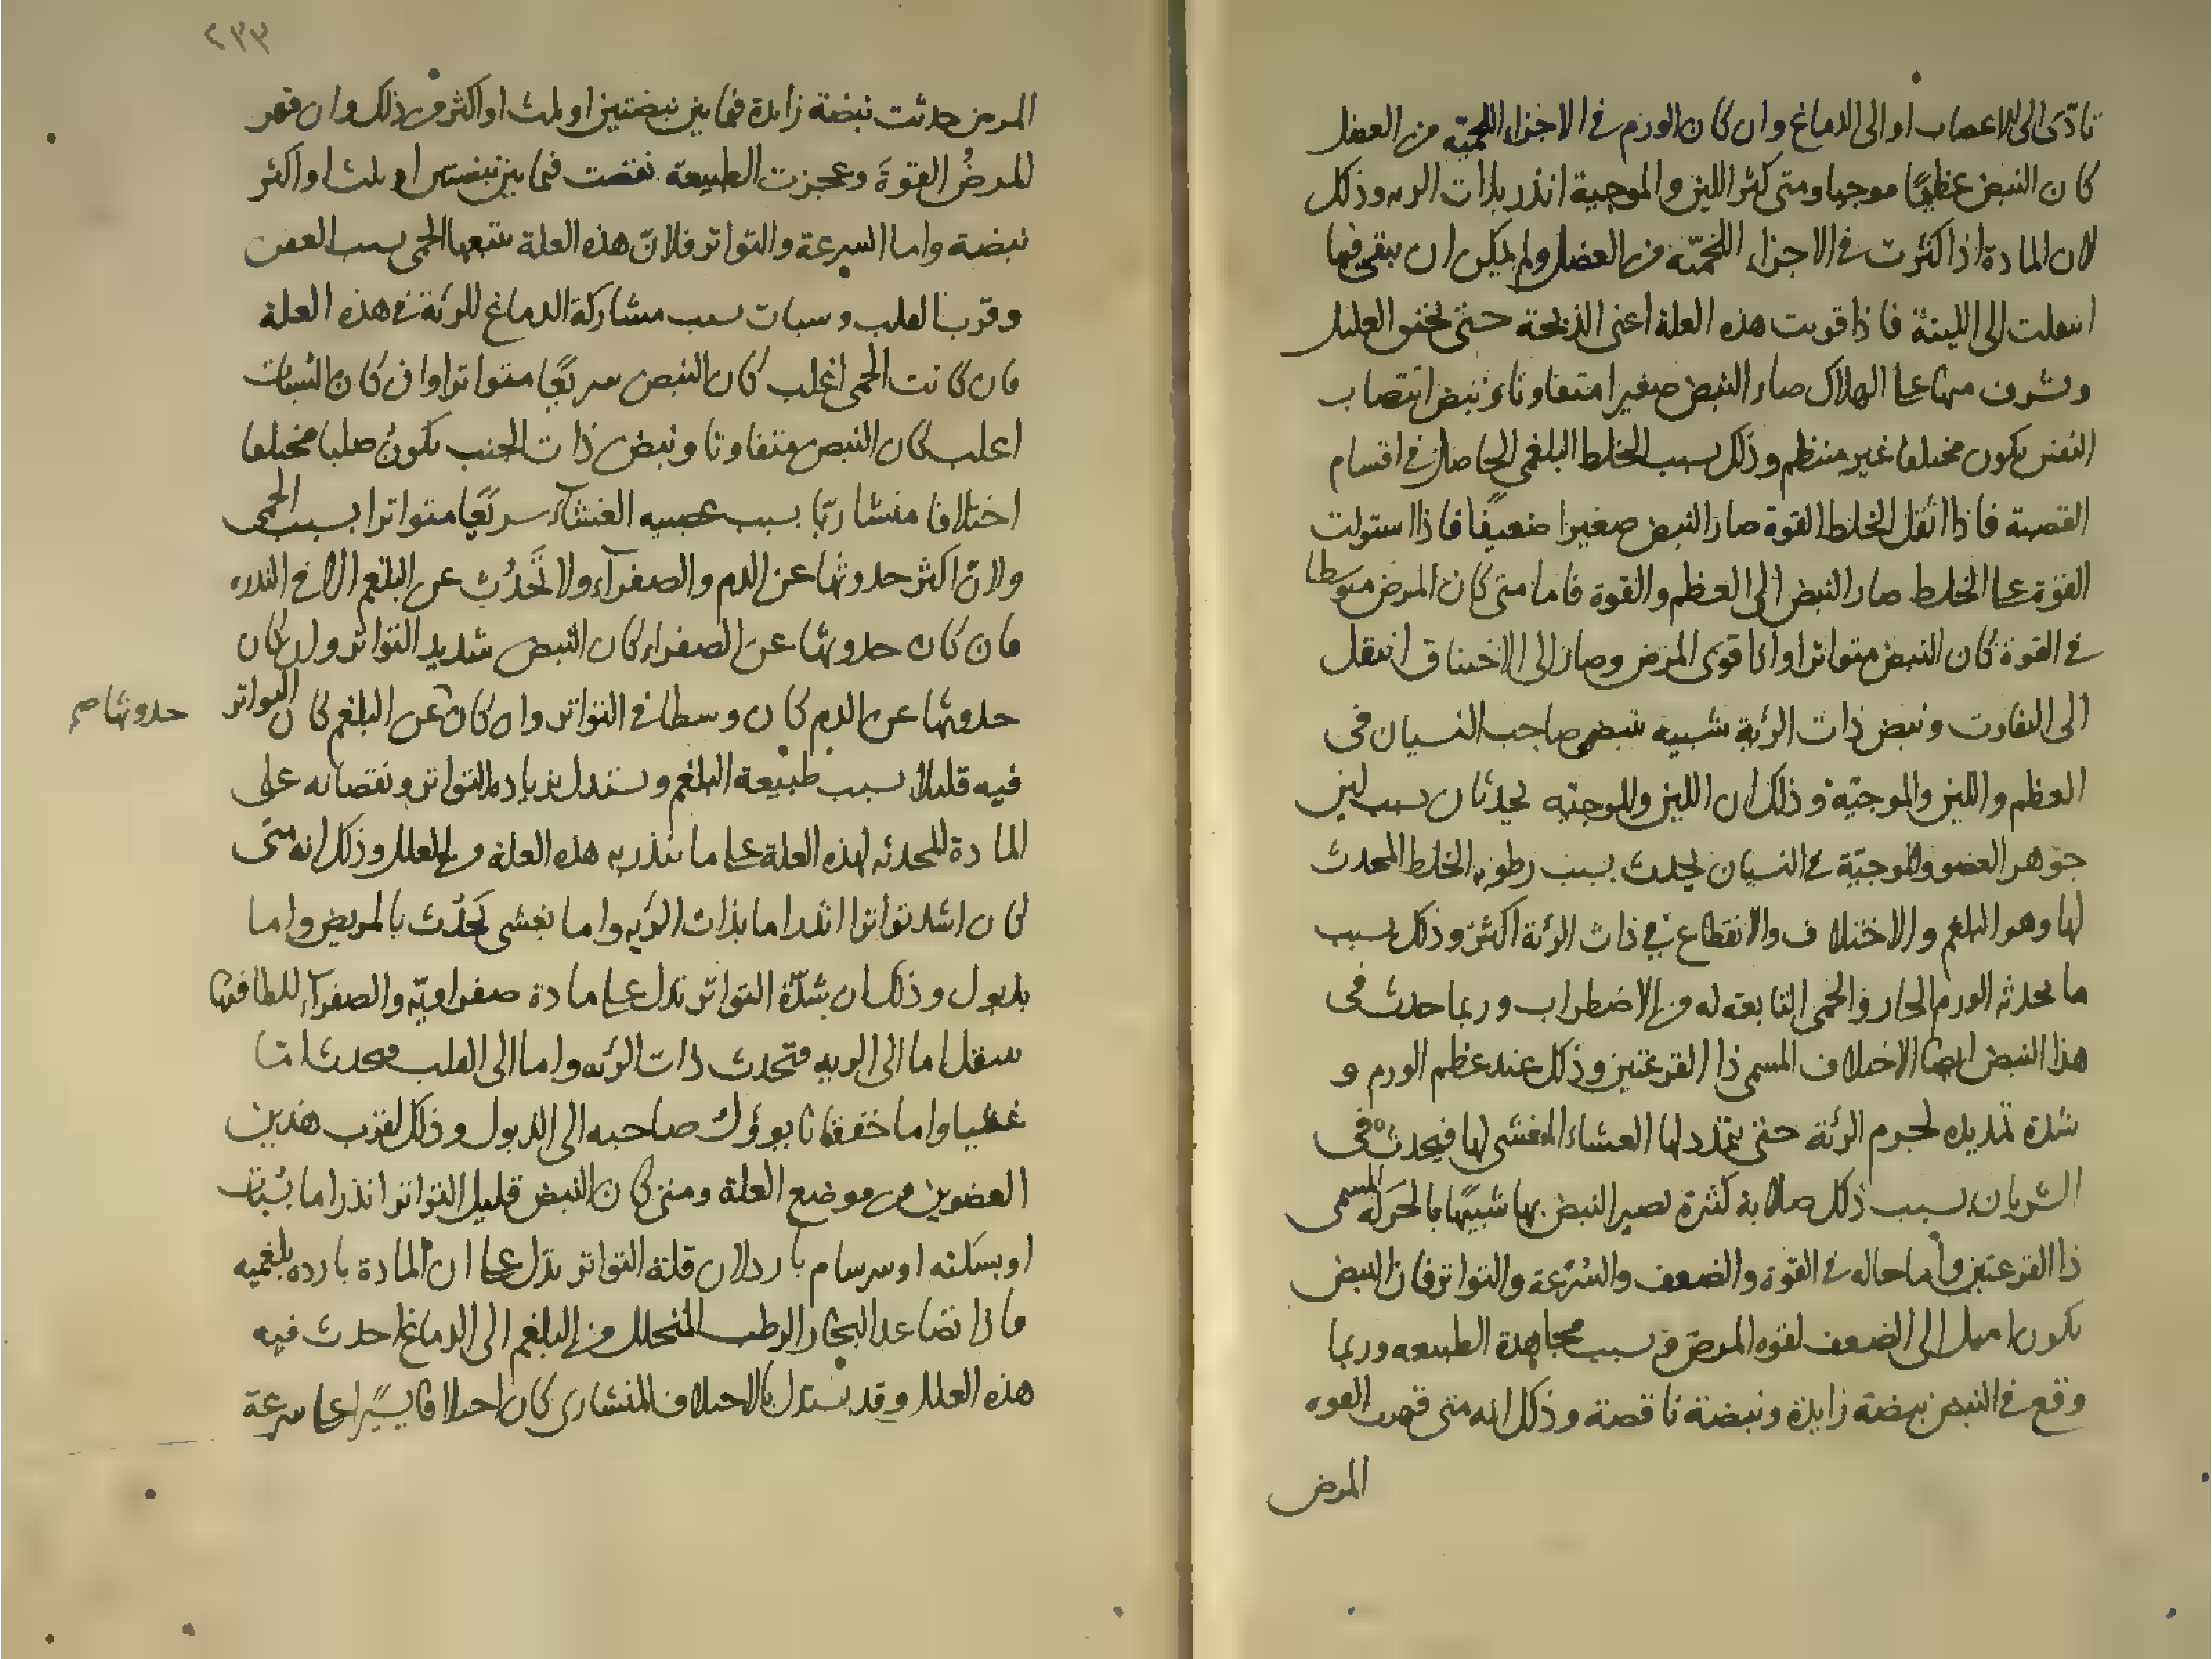 تاذى الى الاعصاب او الى الدماغ وان كان الورم فى الاجزاء اللحمية من العضل
كان النبض عظيمًا موجيا ومتى كثر اللين والموجية انذر بذات الريه وذلك
لان المادة اذا كثرت فى الاجزاء اللحميّة من العضل ولم يمكن ان يبقى فيها
انتقلت الى اللينة فاذا قويت هذه العلة اعنى الذبحة حتى يختنق العليل
ويشرف منها على الهلاك صار النبض صغيرا متفاوتا ونبض انتصاب
النفس يكون مختلفا غير منتظم وذلك بسبب الخلط البلغمى الحاصل فى اقسام
القصبة فاذا اثقل الخلط القوة صار النبض صغيرا ضعيفًا فاذا استولت
القوة على الخلط صار النبض الى العظم والقوة فاما متى كان المرض متوسطا
فى القوة كان النبض متواترا واذا قوى المرض وصار الى الاختناق انتقل
الى التفاوت ونبض ذات الرئة شبيه بنبض صاحب النسيان فى
العظم واللين والموجيّة وذلك ان اللين والموجيه يحدثان بسبب لين
جوهر العضو والموجيّة فى النسيان يحدث بسبب رطوبه الخلط المحدث
لها وهو البلغم والاختلاف والانقطاع فى ذات الرئة اكثر وذلك بسبب
ما يحدثه الورم الحار والحمى التابعة له من الاضطراب وربما حدث فى
هذا النبض ايضا الاختلاف المسمى ذا القرعتين وذلك عند عظم الورم و
شدة تمديده لجرم الرئة حتى يتمدد لها الغشاء المغشى لها فيحدث فى
الشريان بسبب ذلك صلابة كثيرة يصير النبض بها شبيهًا بالحركة المسمى
ذا القرعتين واما حاله فى القوة والضعف والسُّرعة والتواتر فان النبض
يكون اميل الى الضعف لقوه المرض و بسبب مجاهدة الطبيعه وربما
وقع فى النبض نبضة زايدة ونبضة ناقصة وذلك انه متى قهرت القوه
المرض
٢٣٣
المرض حدثت نبضة زايدة فيما بين نبضتين او ثلث او اكثر من ذلك وان قهر
المرضُ القوةَ وعجزت الطبيعة نقصت فيما بين نبضتين او ثلث او اكثر
نبضة واما السرعة والتواتر فلانّ هذه العلة يتبعها الحمى بسبب العفن
وقرب القلب وسبات بسبب مشاركة الدماغ للرئة فى هذه العلة
فان كانت الحمى اغلب كان النبض سريعًا متواترا وان كان السُّبات
اغلب كان النبض متفاوتا ونبض ذات الجنب يكون صلبا مختلفا
اختلافا منشاريّا بسبب عصبيه الغشآء سريعًا متواترا بسبب الحمى
ولانّ اكثر حدوثها عن الدم والصفرآء ولا تَحدُث عن البلغم الا فى الندره
فان كان حدوثها عن الصفراء كان النبض شديد التواتر وان كان
حدوثها عن الدم كان وسطا فى التواتر وان كان عن البلغم كان التواتر
حدوثها صح
فيه قليلا بسبب طبيعة البلغم ويستدل بزيادة التواتر ونقصانه على
المادة المحدثه لهذه العلة على ما ينذر به هذه العلة من العلل وذلك انه متى
كان اشد تواترا انذر اما بذات الرئه واما بغشى يَحدُث بالمريض واما
بذبول وذلك ان شدّة التواتر تدل على مادة صفراويّه والصفرآء للطافتها
ينتقل اما الى الريه فتحدث ذات الرئه واما الى القلب فيحدث امّا
غشيا واما خفقانا يوؤل صاحبه الى الذبول وذلك لقرب هذين
العضوين من موضع العلة ومتى كان النبض قليل التواتر انذر اما بسُبات
او بسكته او سرسام بارد لان قلة التواتر تدل على ان المادة بارده بلغميه
فاذا تصاعد البخار الرطب المتحلل من البلغم الى الدماغ احدث فيه
هذه العلل وقد يستدل بالاختلاف المنشارى كان اختلافا يسيرًا على سرعة